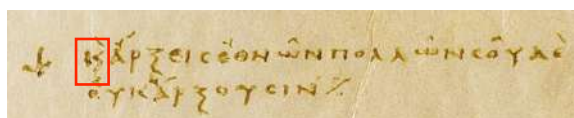 ψ κ̀ ἄρξειϲ ἐθνῶν πολλῶν ϲοῦ δὲ
οὐκ ἄρξουϲιν ⁒